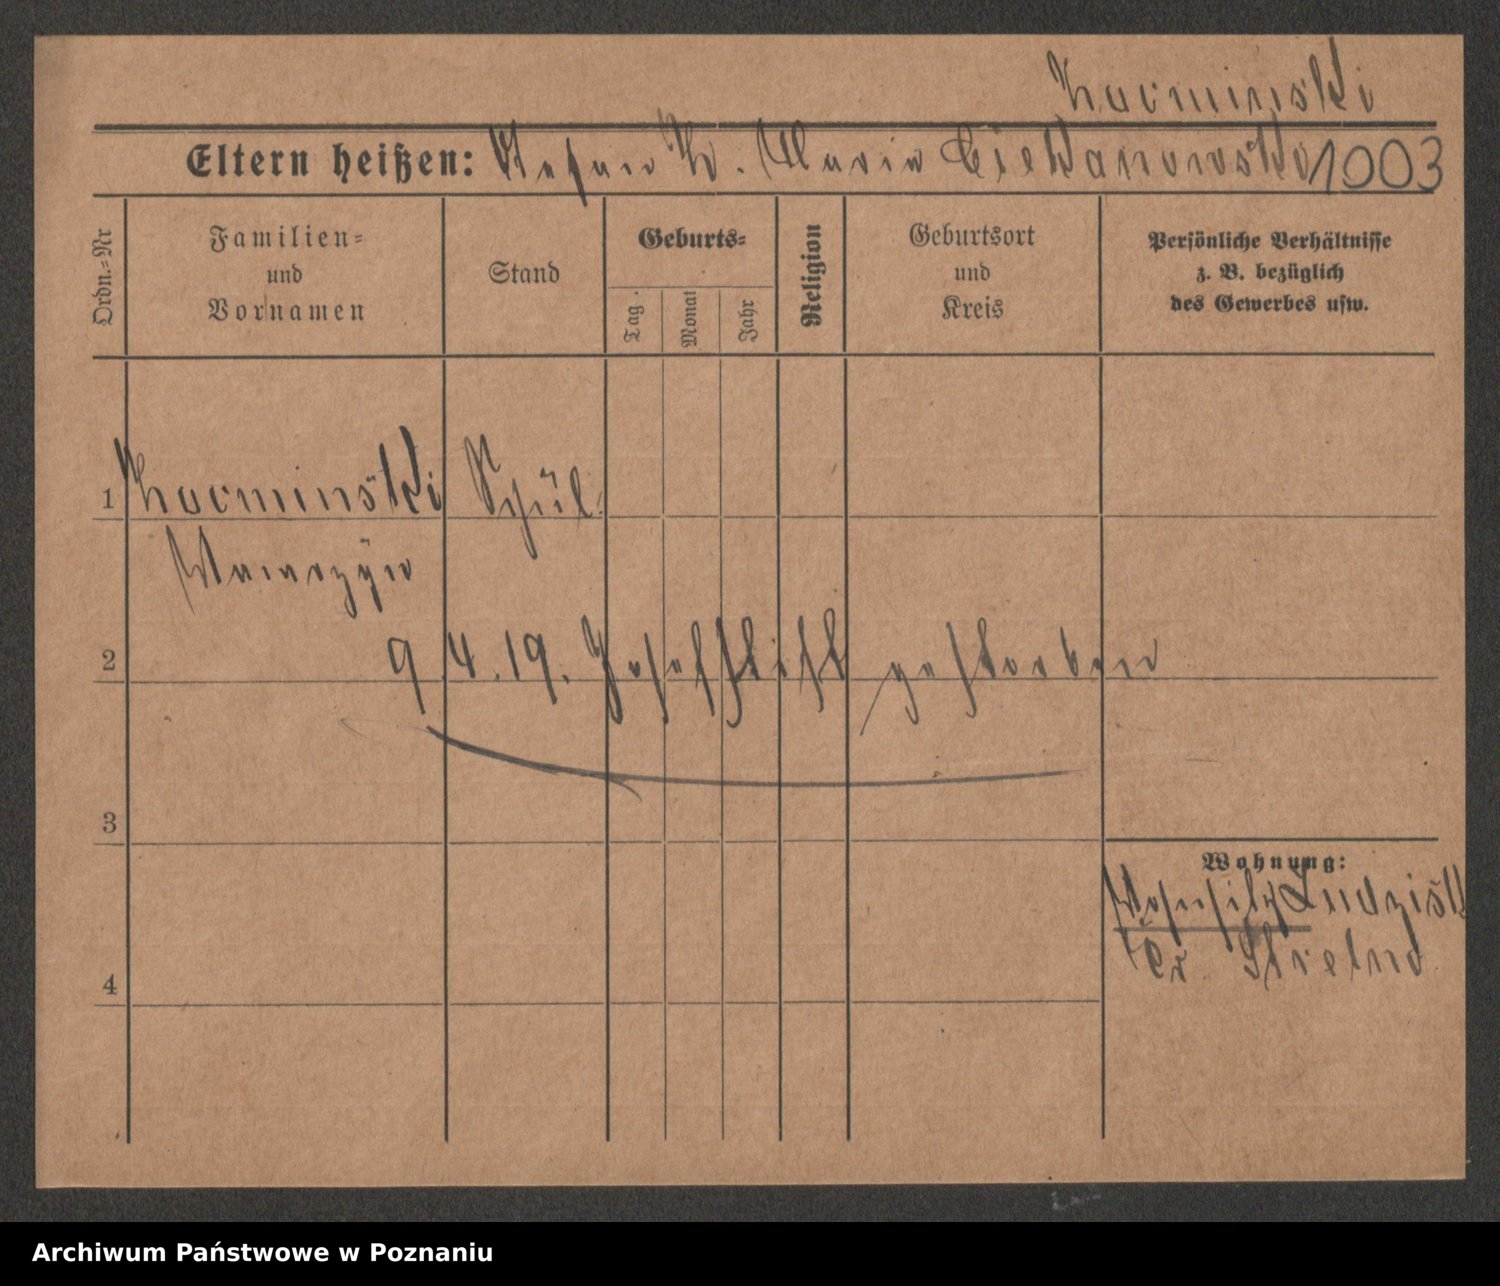 Kacminski
Eltern heißen: Stefan K. Maria Ciekanowska 1003
Ordn.=Nr
Familien=
und
Vornamen
Stand
Geburts=
Tag
Monat
Jahr
Religion
Geburtsort
und
Kreis
Persönliche Verhältnisse
z. B. bezüglich
des Gewerbes usw.
1 Kacminski Schül.
Wawrzyn
2 9.4.19. Josefstift gestorben
3
Wohnung:
Wohnsitz
Kr Strelno
4
Archiwum Państwowe w Poznaniu